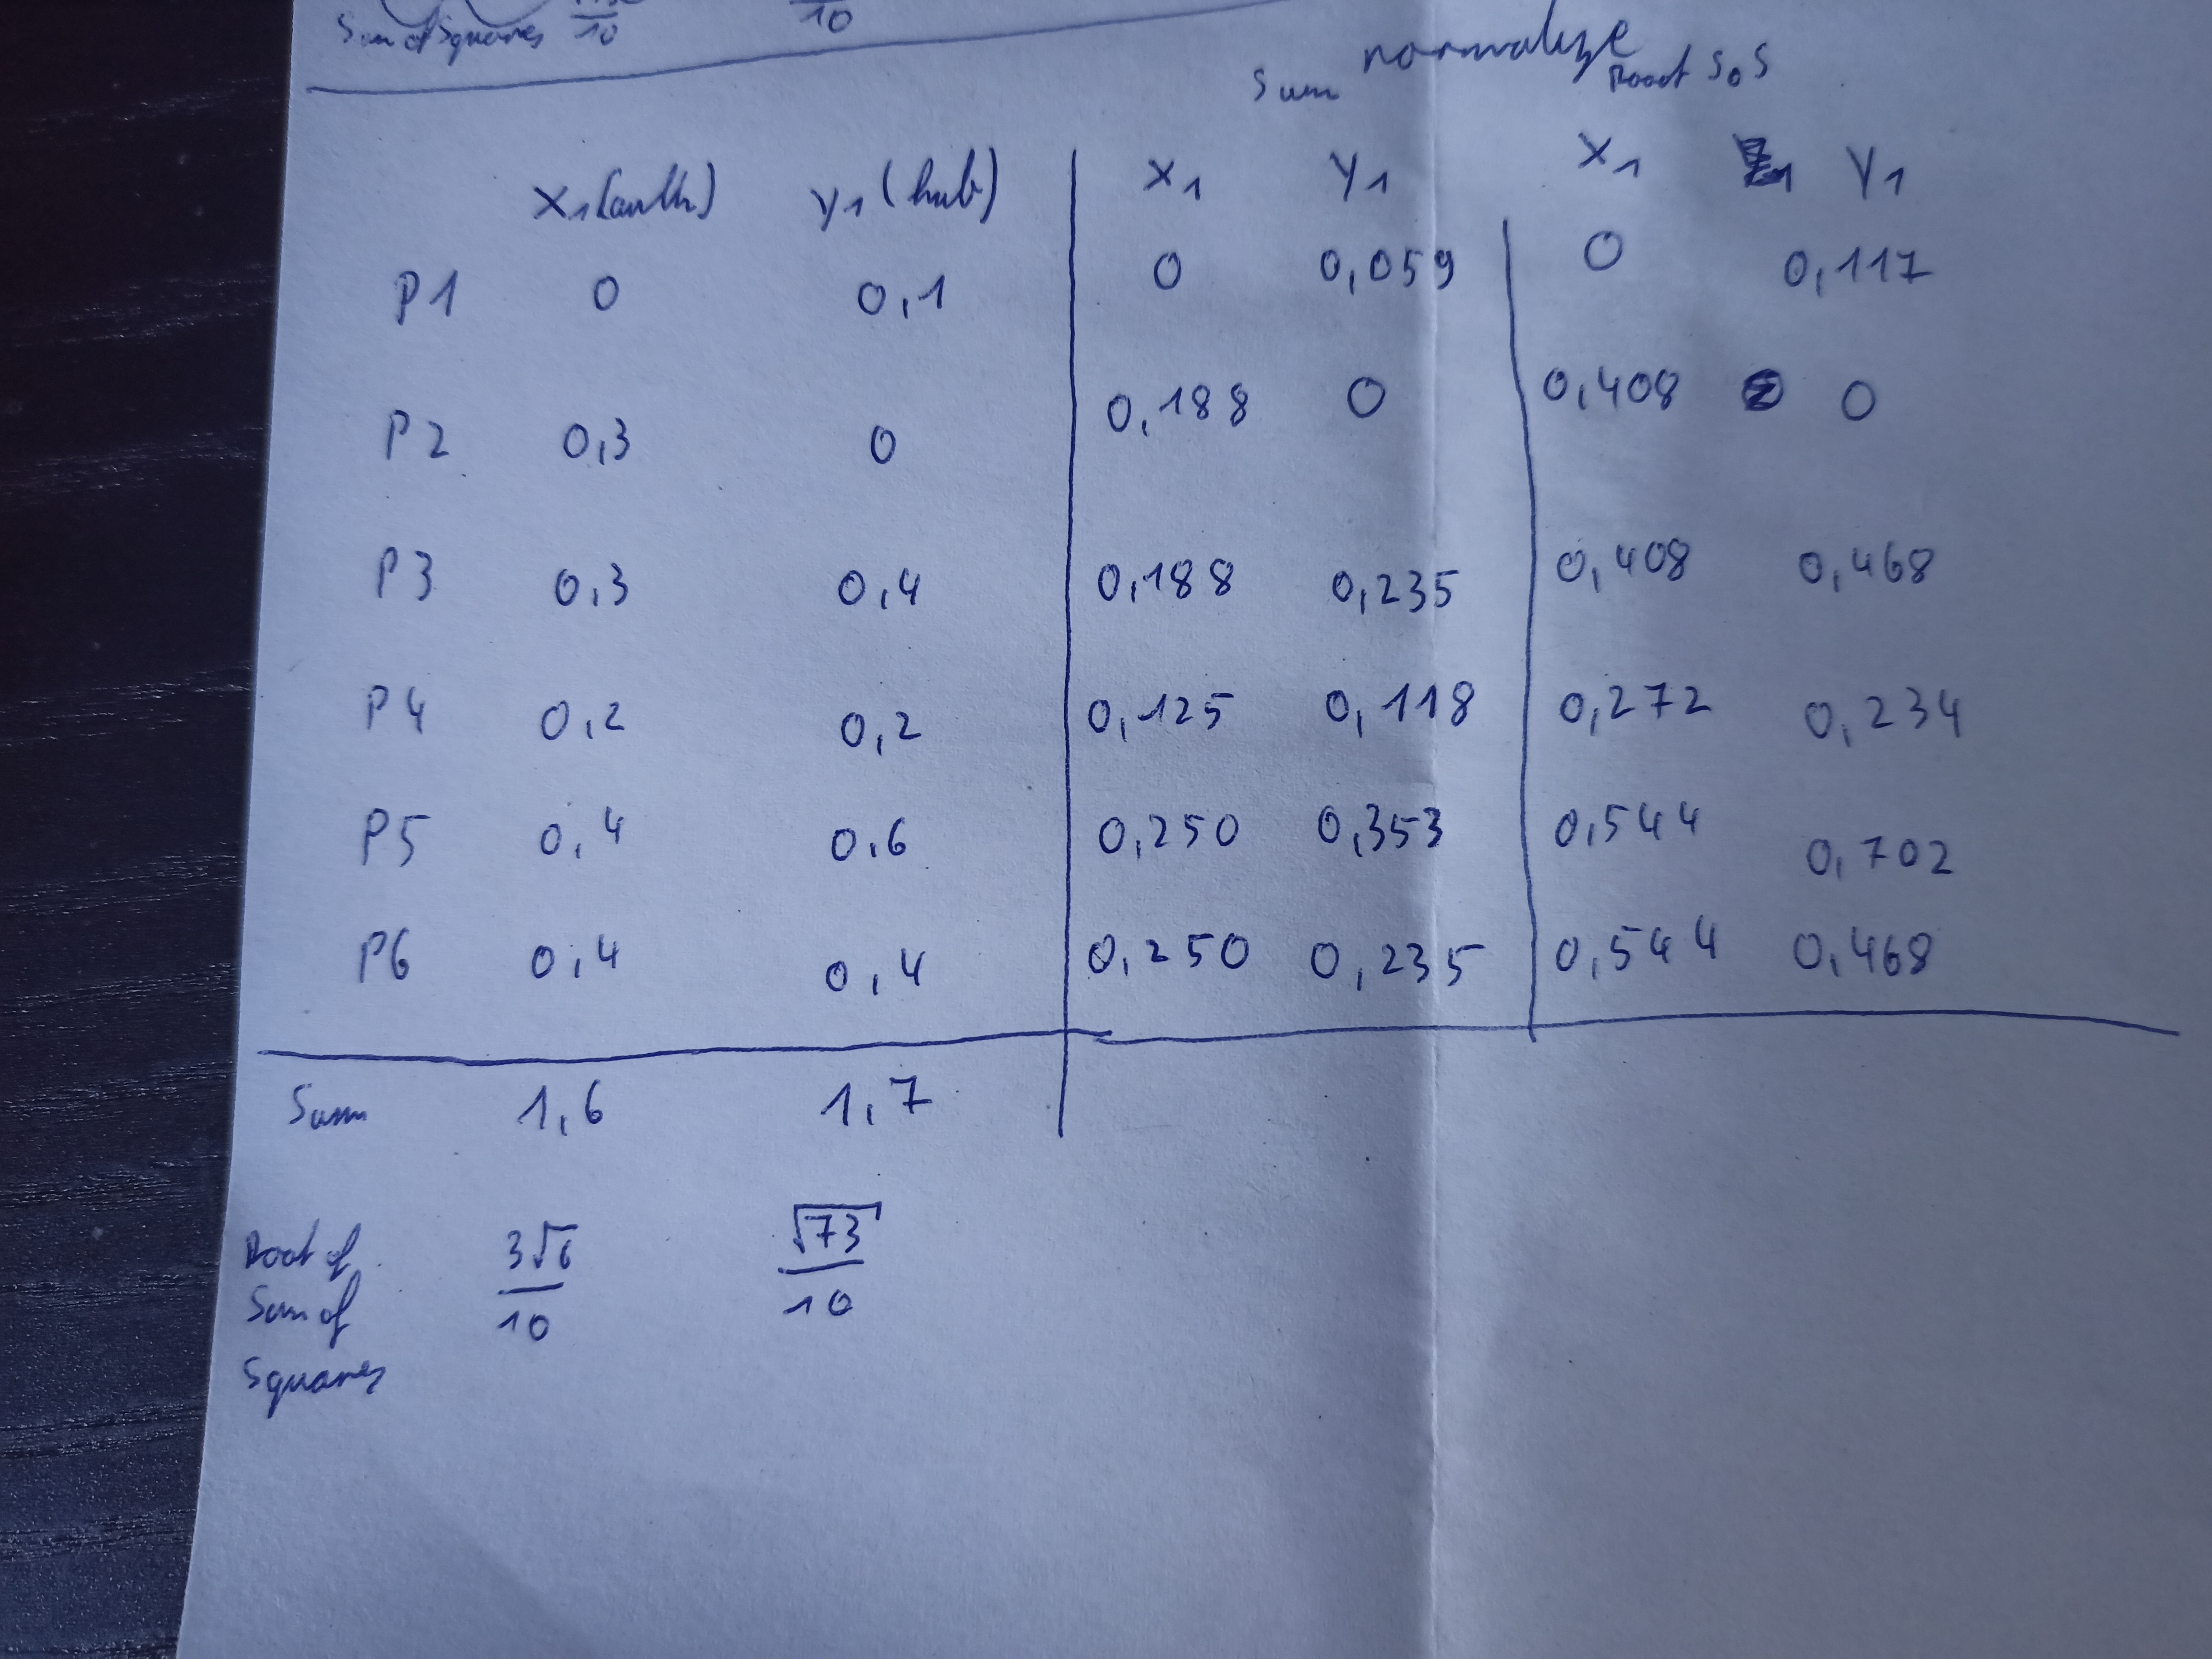 Sum of Squares /10 /10
normalize
Sum Root SoS
x1(auth) y1(hub) x1 y1 x1 y1
P1 0 0,1 0 0,059 0 0,117
P2 0,3 0 0,188 0 0,408 0
P3 0,3 0,4 0,188 0,235 0,408 0,468
P4 0,2 0,2 0,125 0,118 0,272 0,234
P5 0,4 0,6 0,250 0,353 0,544 0,702
P6 0,4 0,4 0,250 0,235 0,544 0,468
Sum 1,6 1,7
Root of
Sum of
Squares 3√6/10 √73/10